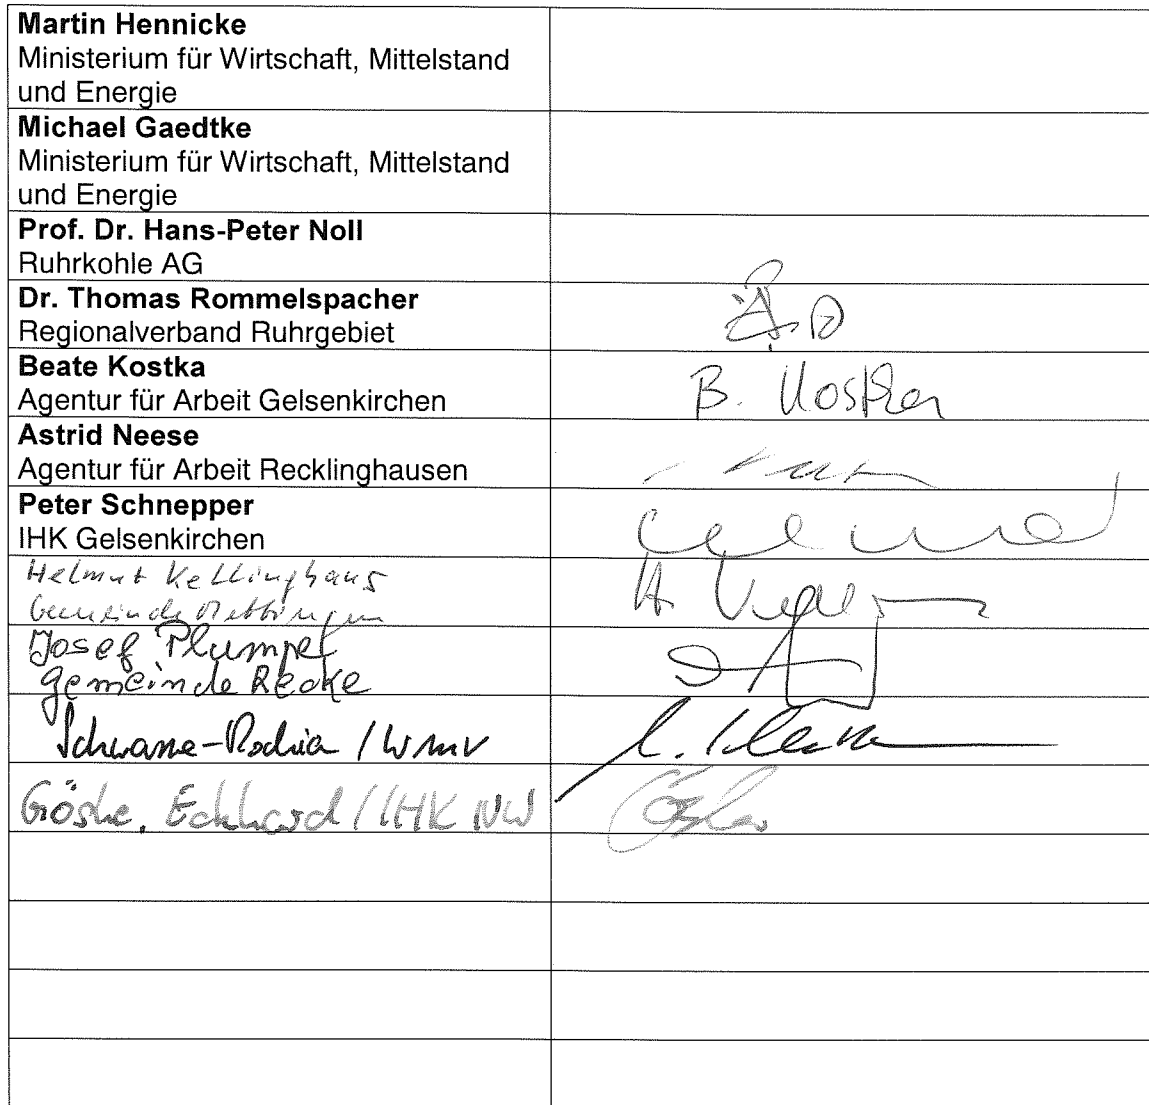 Martin Hennicke
Ministerium für Wirtschaft, Mittelstand
und Energie
Michael Gaedtke
Ministerium für Wirtschaft, Mittelstand
und Energie
Prof. Dr. Hans-Peter Noll
Ruhrkohle AG
Dr. Thomas Rommelspacher
Regionalverband Ruhrgebiet
Beate Kostka
B. Kostka
Agentur für Arbeit Gelsenkirchen
Astrid Neese
Agentur für Arbeit Recklinghausen
Peter Schnepper
IHK Gelsenkirchen
Helmut Kellinghaus
Gemeinde Mettingen
Josef Plumpe
Gemeinde Recke
/ WMV
Göske, Eckhard / IHK NW